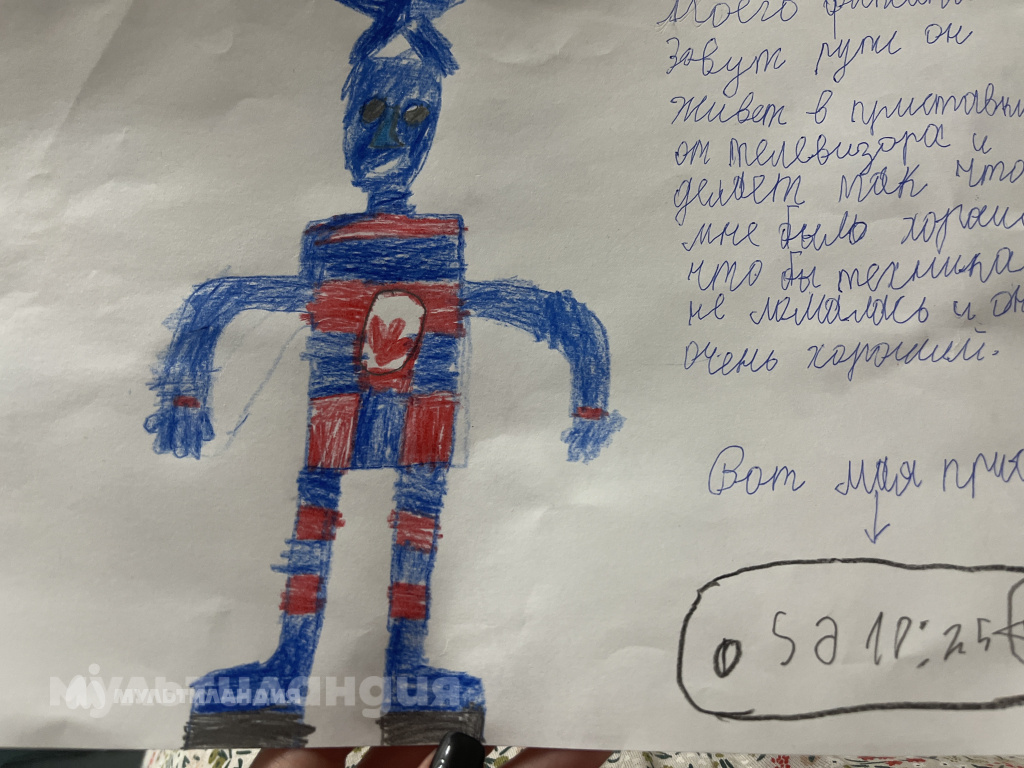 Моего
Зовут рути он
живет в приставки
от телевизора и
делает так что
мне было хорошо
что бы техника
не ломалась и он
очень хороший.
Вот моя
Sa 18:25
мультиландия
МУЛЬТИЛАНДИЯ